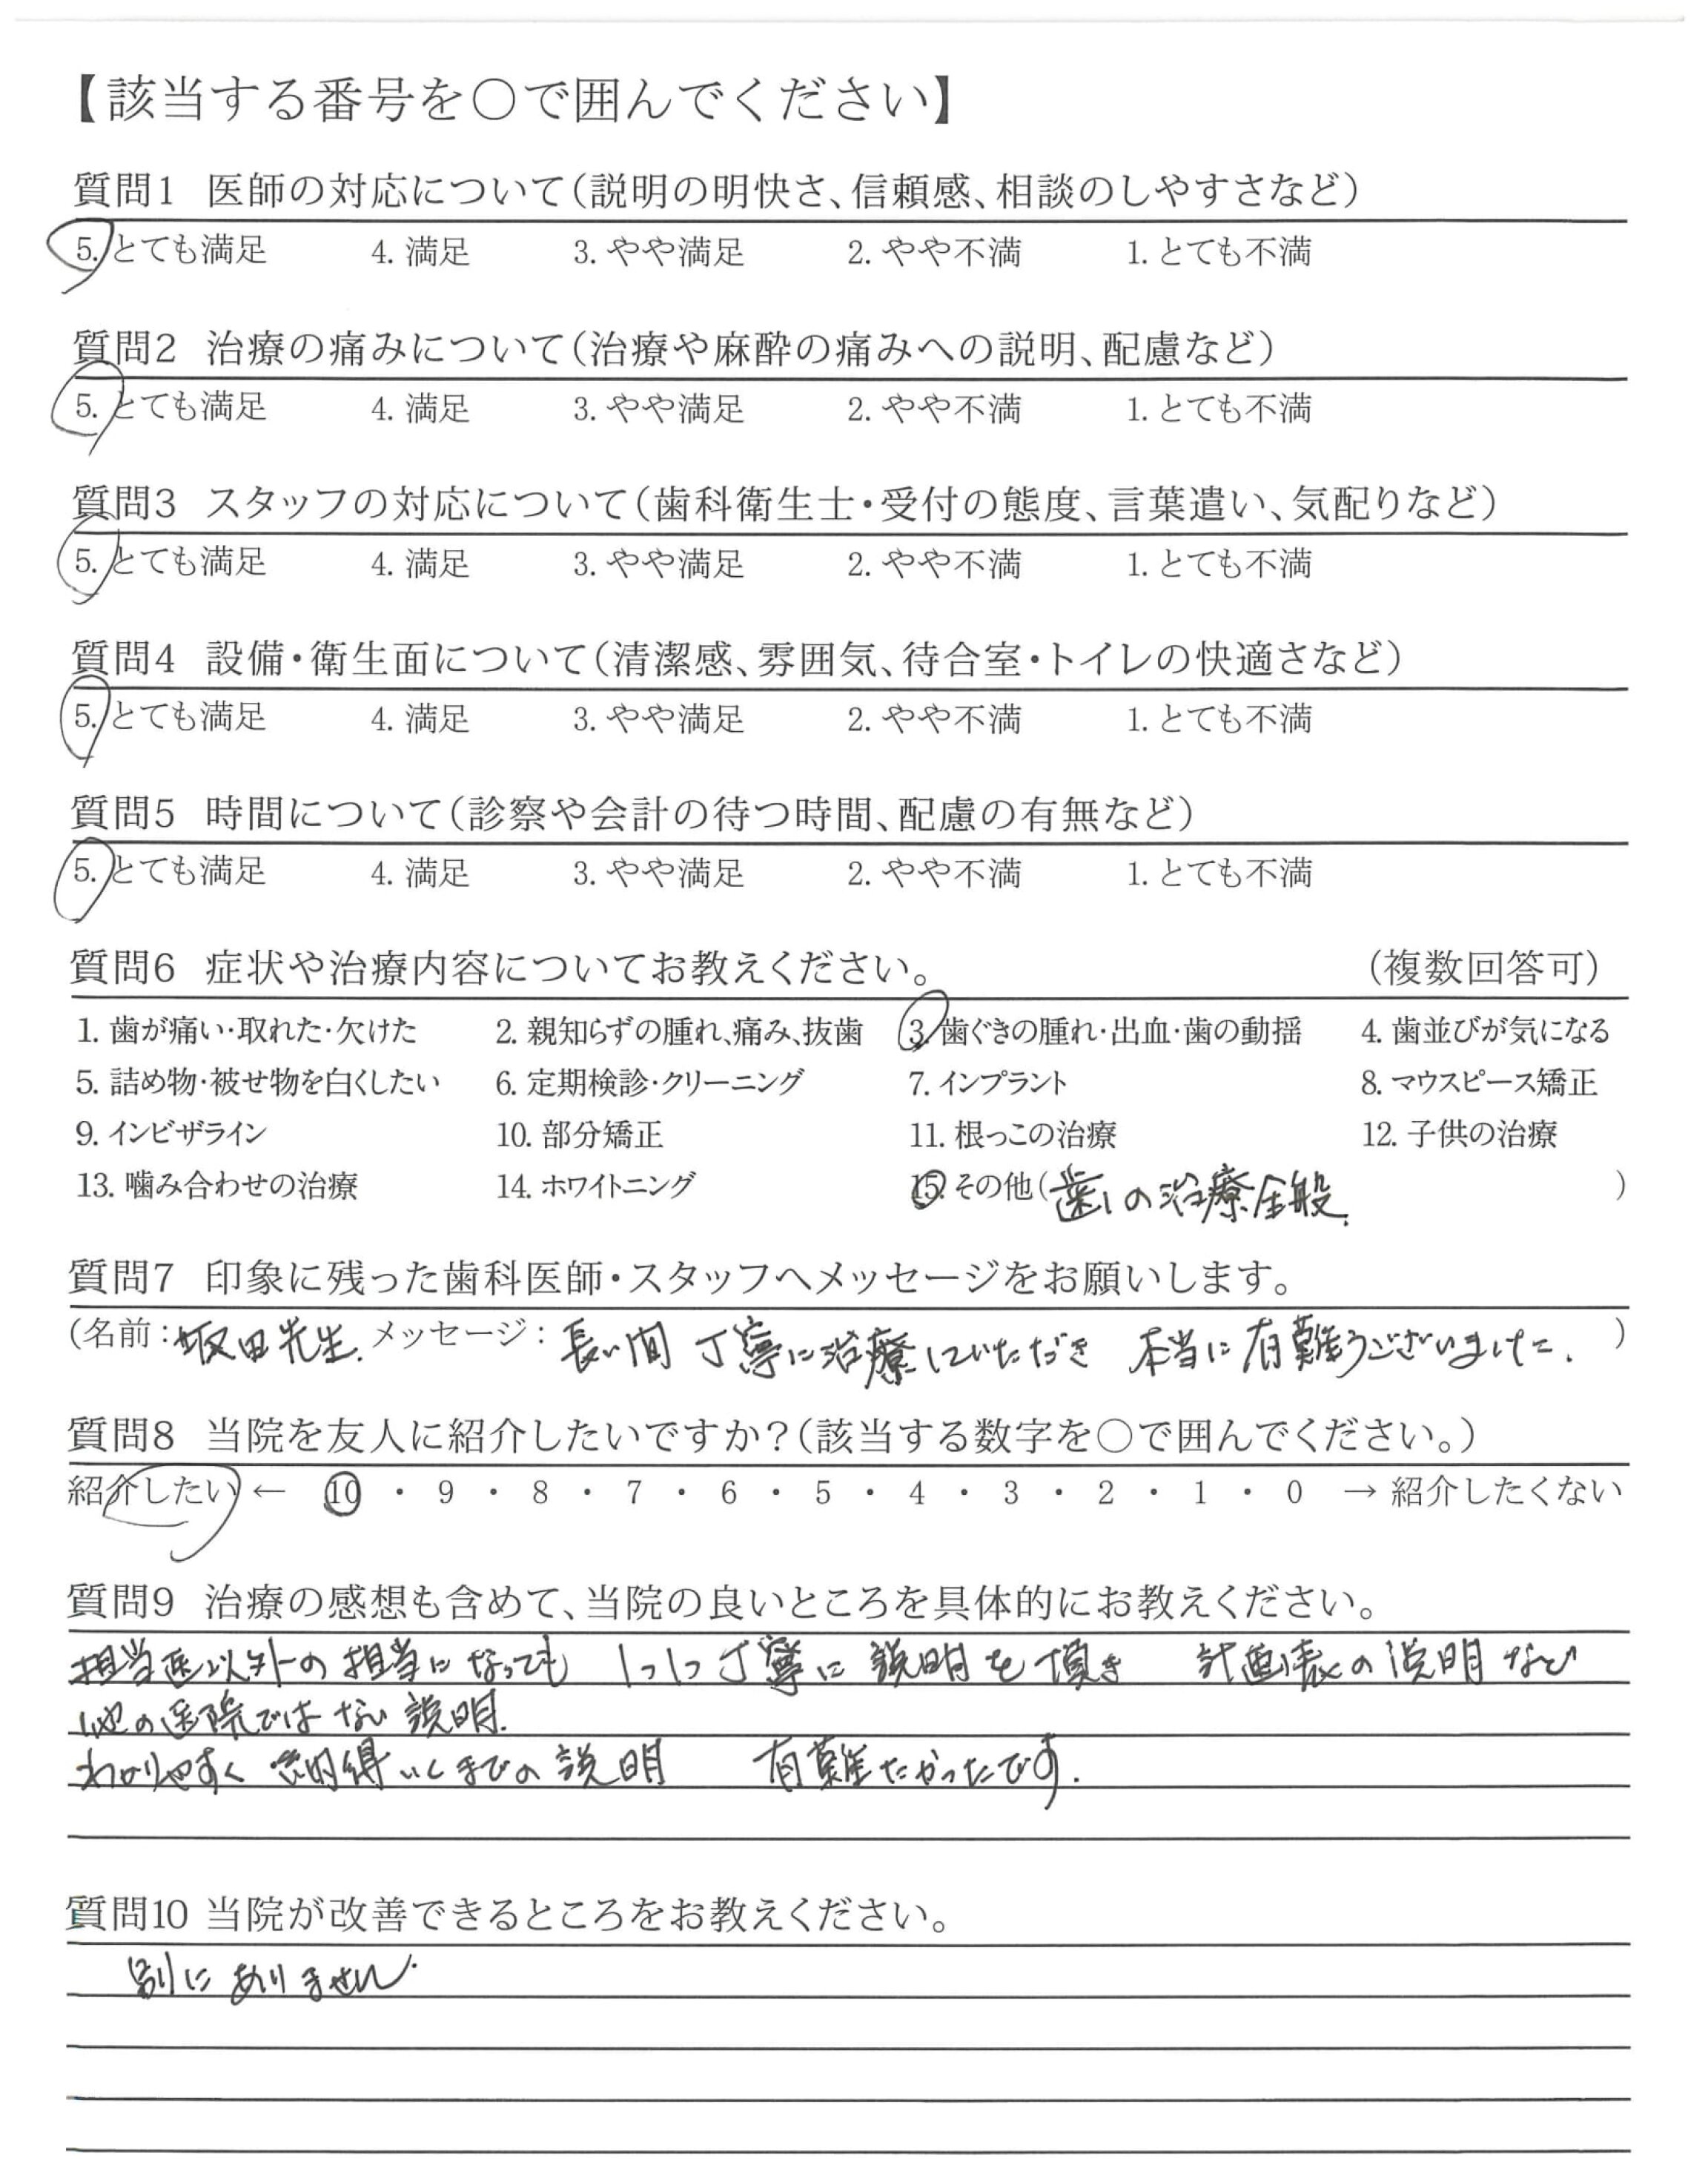 【該当する番号を○で囲んでください】
質問1 医師の対応について(説明の明快さ、信頼感、相談のしやすさなど)
5. とても満足 4. 満足 3. やや満足 2. やや不満 1. とても不満
質問2 治療の痛みについて(治療や麻酔の痛みへの説明、配慮など)
5. とても満足 4. 満足 3. やや満足 2. やや不満 1. とても不満
質問3 スタッフの対応について(歯科衛生士・受付の態度、言葉遣い、気配りなど)
5. とても満足 4. 満足 3. やや満足 2. やや不満 1. とても不満
質問4 設備・衛生面について(清潔感、雰囲気、待合室・トイレの快適さなど)
5. とても満足 4. 満足 3. やや満足 2. やや不満 1. とても不満
質問5 時間について(診察や会計の待つ時間、配慮の有無など)
5. とても満足 4. 満足 3. やや満足 2. やや不満 1. とても不満
質問6 症状や治療内容についてお教えください。 (複数回答可)
1. 歯が痛い・取れた・欠けた 2. 親知らずの腫れ、痛み、抜歯 3. 歯ぐきの腫れ・出血・歯の動揺 4. 歯並びが気になる
5. 詰め物・被せ物を白くしたい 6. 定期検診・クリーニング 7. インプラント 8. マウスピース矯正
9. インビザライン 10. 部分矯正 11. 根っこの治療 12. 子供の治療
13. 噛み合わせの治療 14. ホワイトニング 15. その他(歯の治療全般. )
質問7 印象に残った歯科医師・スタッフへメッセージをお願いします。
(名前:坂田先生. メッセージ: 長い間 丁寧に治療していただき 本当に有難うございました. )
質問8 当院を友人に紹介したいですか?(該当する数字を○で囲んでください。)
紹介したい ← 10 ・ 9 ・ 8 ・ 7 ・ 6 ・ 5 ・ 4 ・ 3 ・ 2 ・ 1 ・ 0 → 紹介したくない
質問9 治療の感想も含めて、当院の良いところを具体的にお教えください。
担当医以外の担当になっても 1つ1つ丁寧に説明を頂き 計画表の説明など
他の医院ではない説明.
わかりやすく 納得いくまでの説明 有難たかったです.
質問10 当院が改善できるところをお教えください。
別にありません.